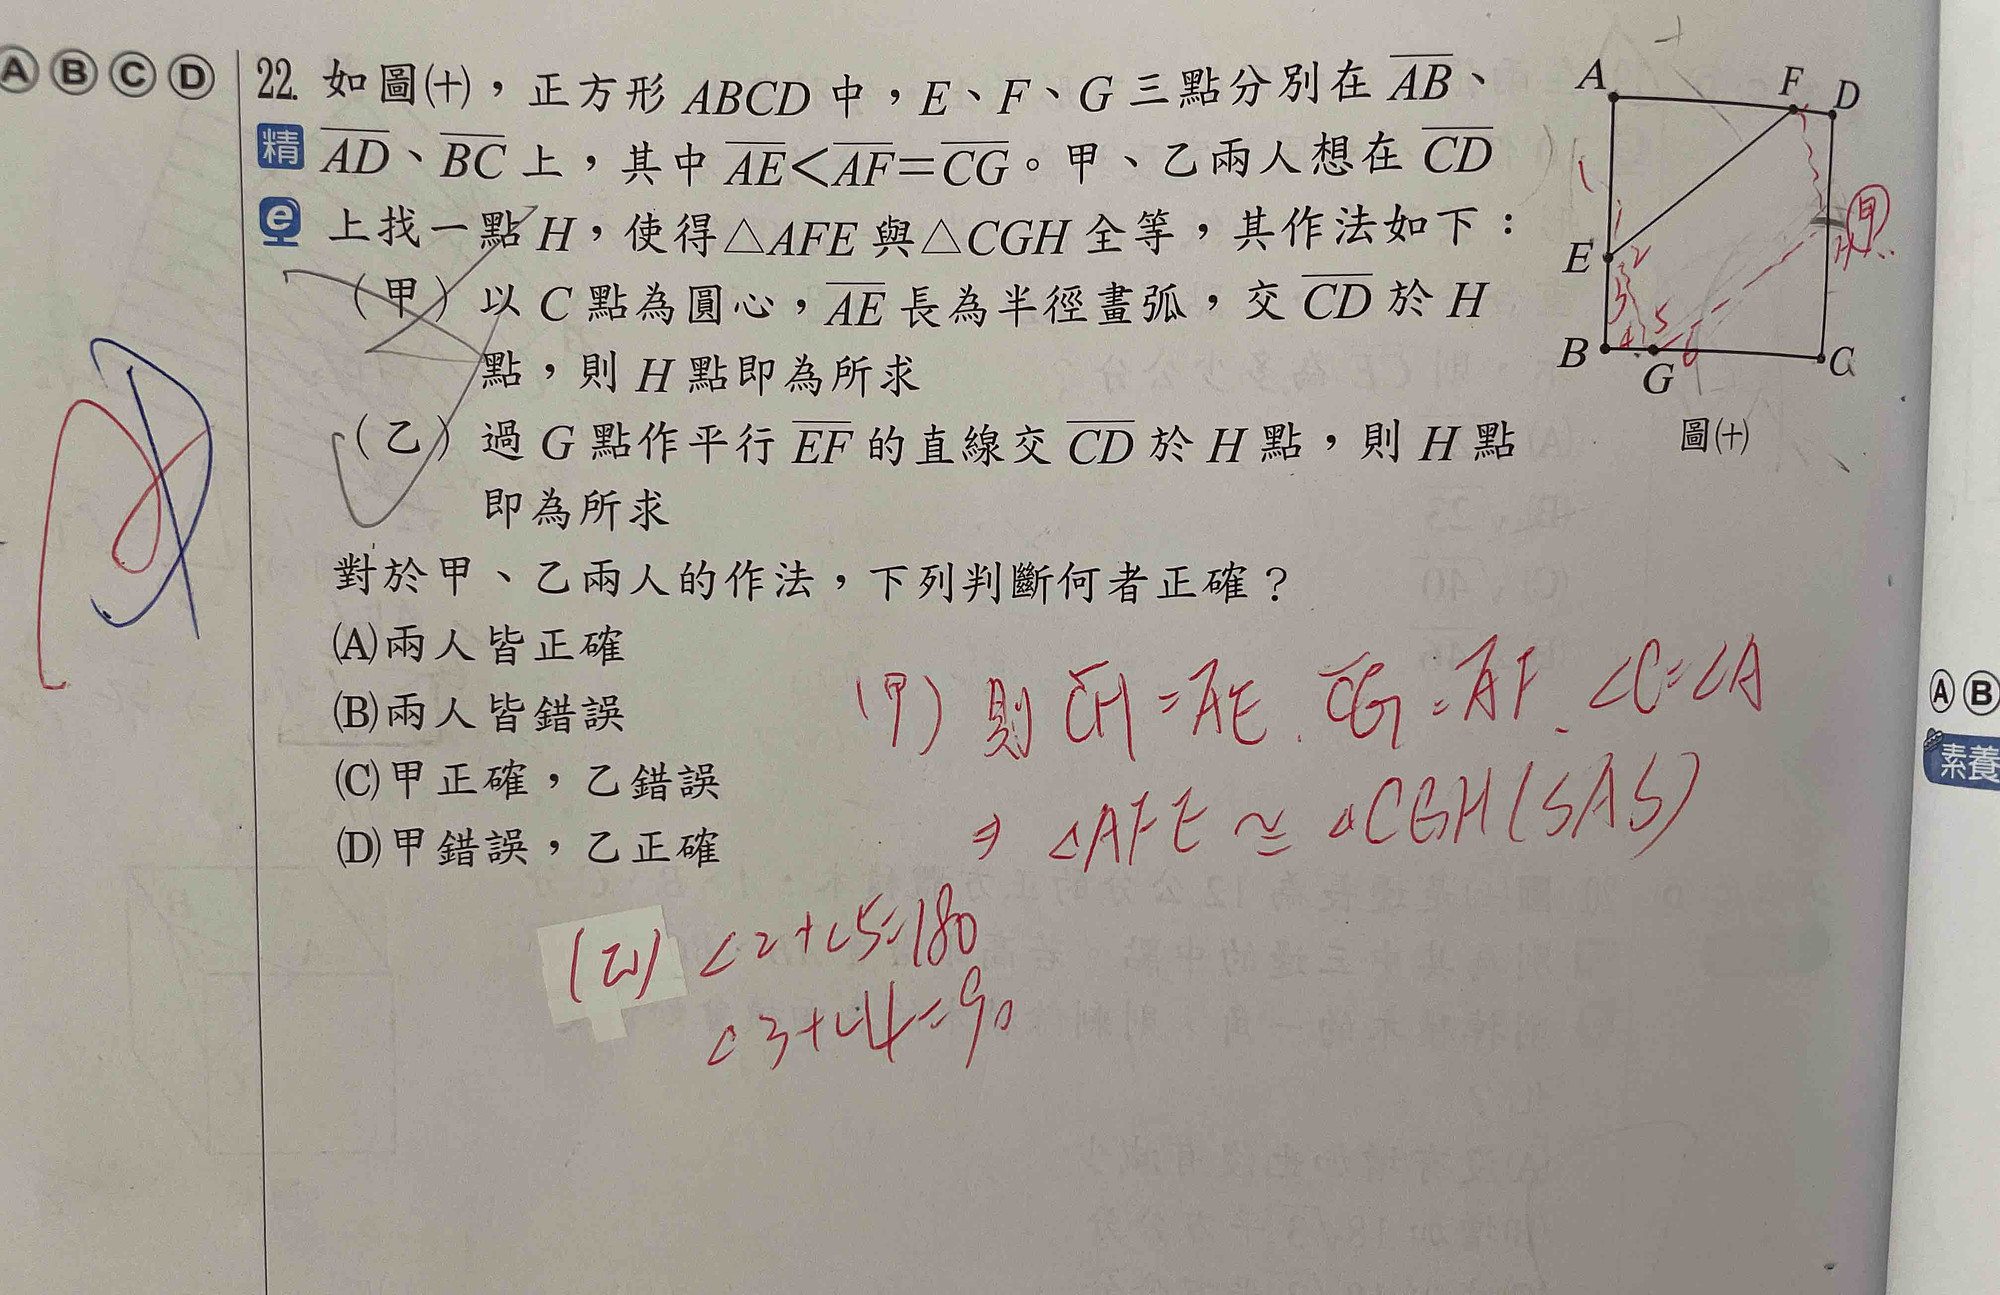 Ⓐ Ⓑ Ⓒ Ⓓ
22. 如圖(十)，正方形 ABCD 中，E、F、G 三點分別在 AB、
精 AD、BC 上，其中 AE<AF=CG。甲、乙兩人想在 CD
e 上找一點 H，使得△AFE 與△CGH 全等，其作法如下：
(甲) 以 C 點為圓心，AE 長為半徑畫弧，交 CD 於 H
點，則 H 點即為所求
(乙) 過 G 點作平行 EF 的直線交 CD 於 H 點，則 H 點
即為所求
對於甲、乙兩人的作法，下列判斷何者正確？
(A)兩人皆正確
(B)兩人皆錯誤
(C)甲正確，乙錯誤
(D)甲錯誤，乙正確
A F D
E
B G C
1 2 3 4 5 6
甲
圖(十)
(甲) 則 CH = AE . CG = AF . ∠C=∠A
⇒ △AFE ≅ △CGH (SAS)
(乙) ∠2+∠5=180
∠3+∠4=90
Ⓐ Ⓑ
素養